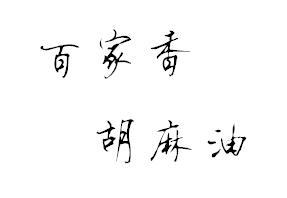 百家香
胡麻油